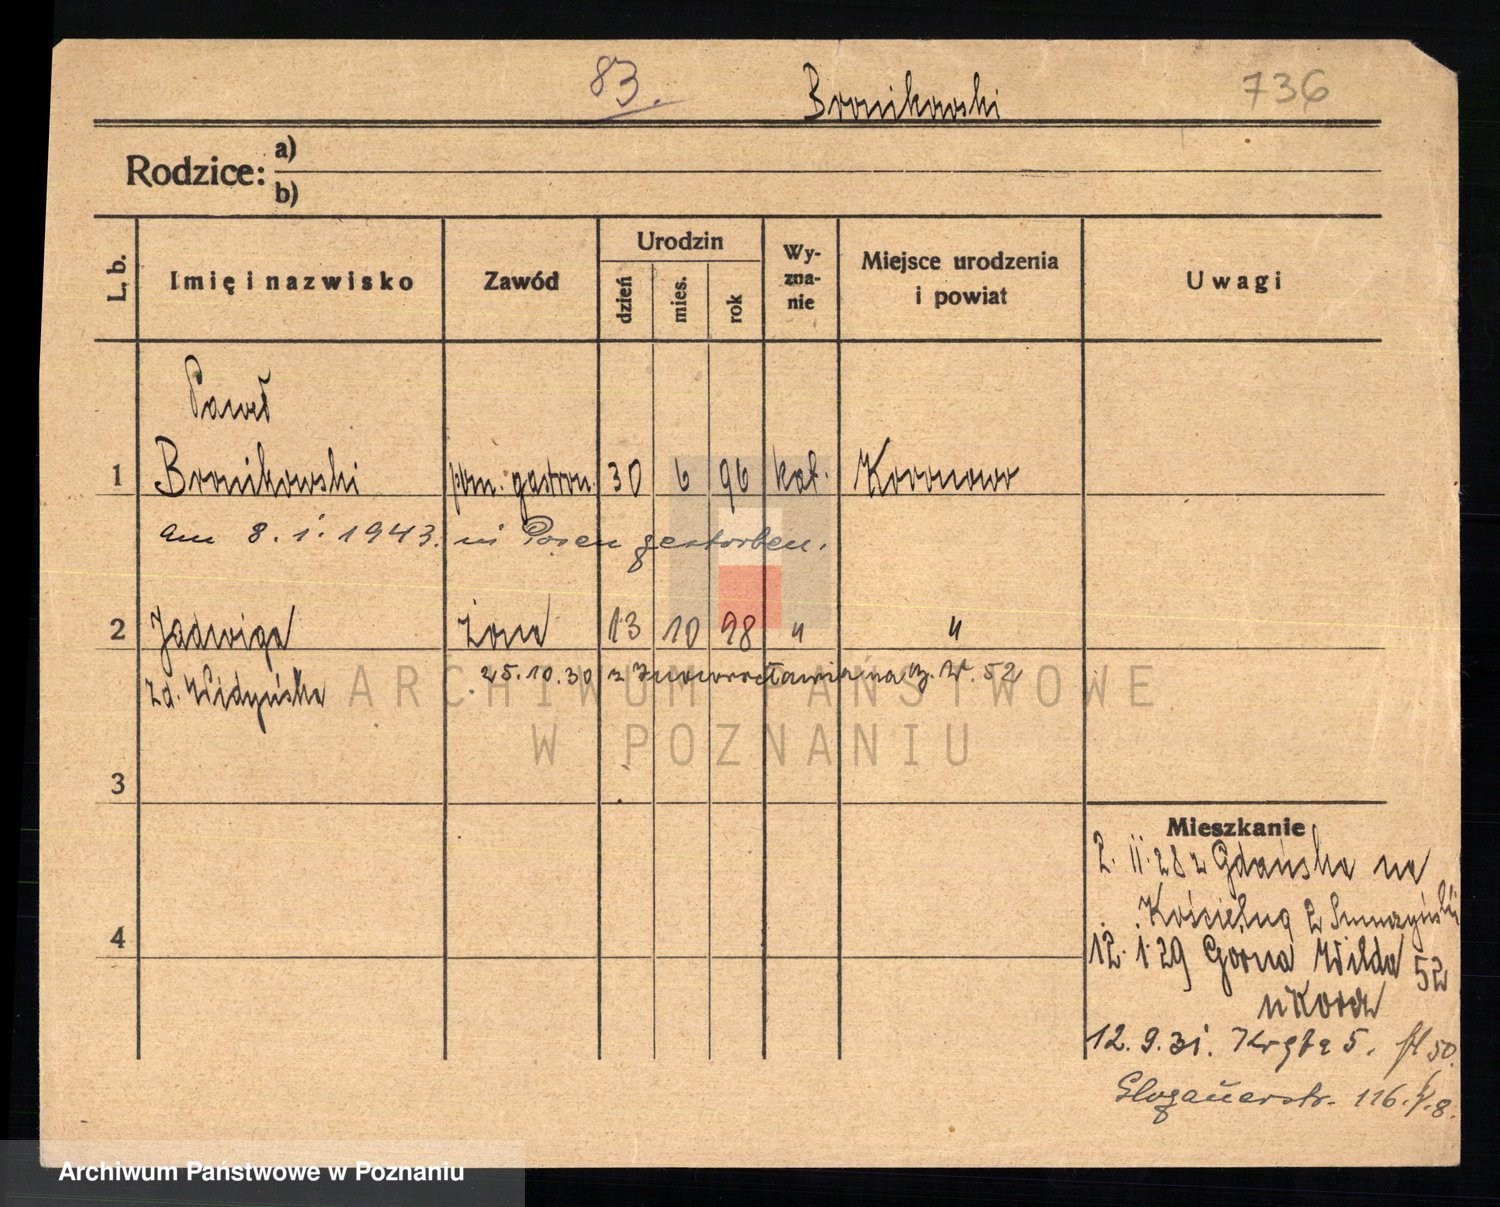 83. Bronikowski 736
Rodzice: a)
b)
L, b. Imię i nazwisko Zawód Urodzin dzień mies. rok Wy-zna-nie Miejsce urodzenia i powiat Uwagi
Paweł
1 Bronikowski pom. gastron. 30 6 96 kat. Koronowo
am 8. 1. 1943. in Posen gestorben.
2 Jadwiga żona 13 10 98 " "
zd. Widzyńska 25.10.30 z Inowrocławia na G. W. 52
ARCHIWUM PAŃSTWOWE
W POZNANIU
3
Mieszkanie
2. 11. 28 z Gdańska na
Kościelną 2
4
12. 1 29 Gorna Wilda 52
u
12. 9. 31. Kręta 5.
Glogauerstr. 116.
Archiwum Państwowe w Poznaniu